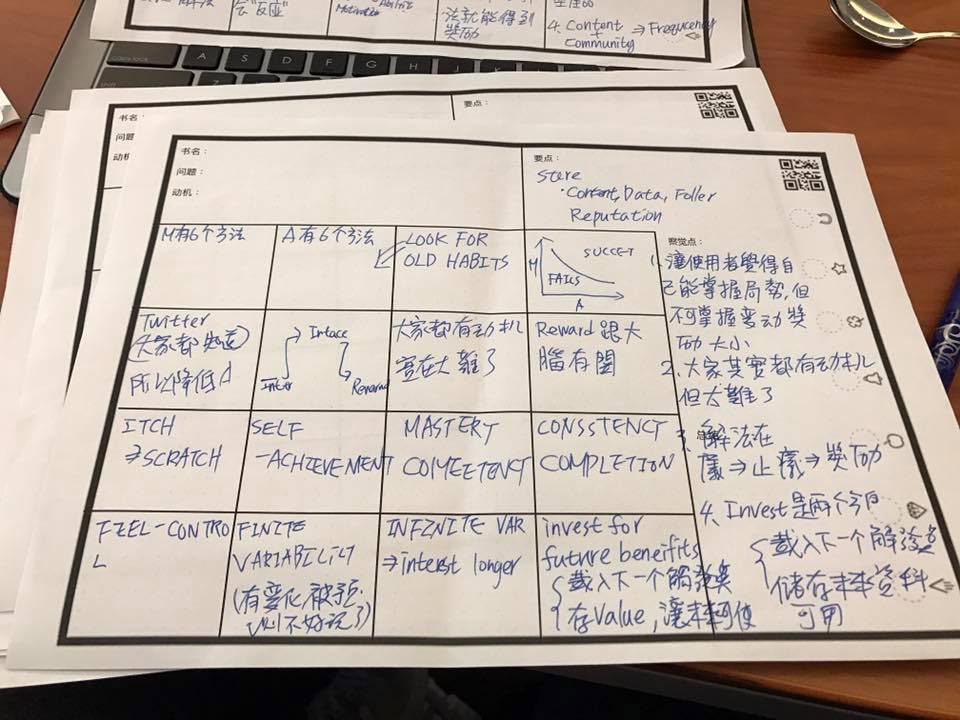 会"反应"
Motivation
法就能得到
獎励
4. Content ⇒ Frequency
+
Community
A S D F G H J K L
书名：
要点：
问题
动机
书名：
问题：
动机：
要点：
Store
·Content, Data, Foller
Reputation
M有6个方法
A有6个方法
LOOK FOR
OLD HABITS
M
SUCCET
FAILS
A
Twitter
(大家都知道)
所以降低A
Intace
Inter
Reward
大家都有动机
實在太難了
Reward跟大
腦有関
ITCH
⇒SCRATCH
SELF
-ACHIEVEMENT
MASTERY
COMEETENCT
CONSSTENCT
COMPLETION
FZEL-CONTRO
L
FINITE
VARIABILILT
(有变化被预.
測則不好玩了)
INFZNITE VAR
⇒interst longer
invest for
future benefits
載入下一个觸發奌
存Value,讓未來可使
察觉点：
1. 讓使用者覺得自
己能掌握局勢,但
不可掌握变动奬
励大小
2. 大家其實都有动机
但太難了
3. 解法在
癢⇒止癢⇒獎励
4. Invest是兩个部門
載入下一个觸發奌
儲存未來资料
可用